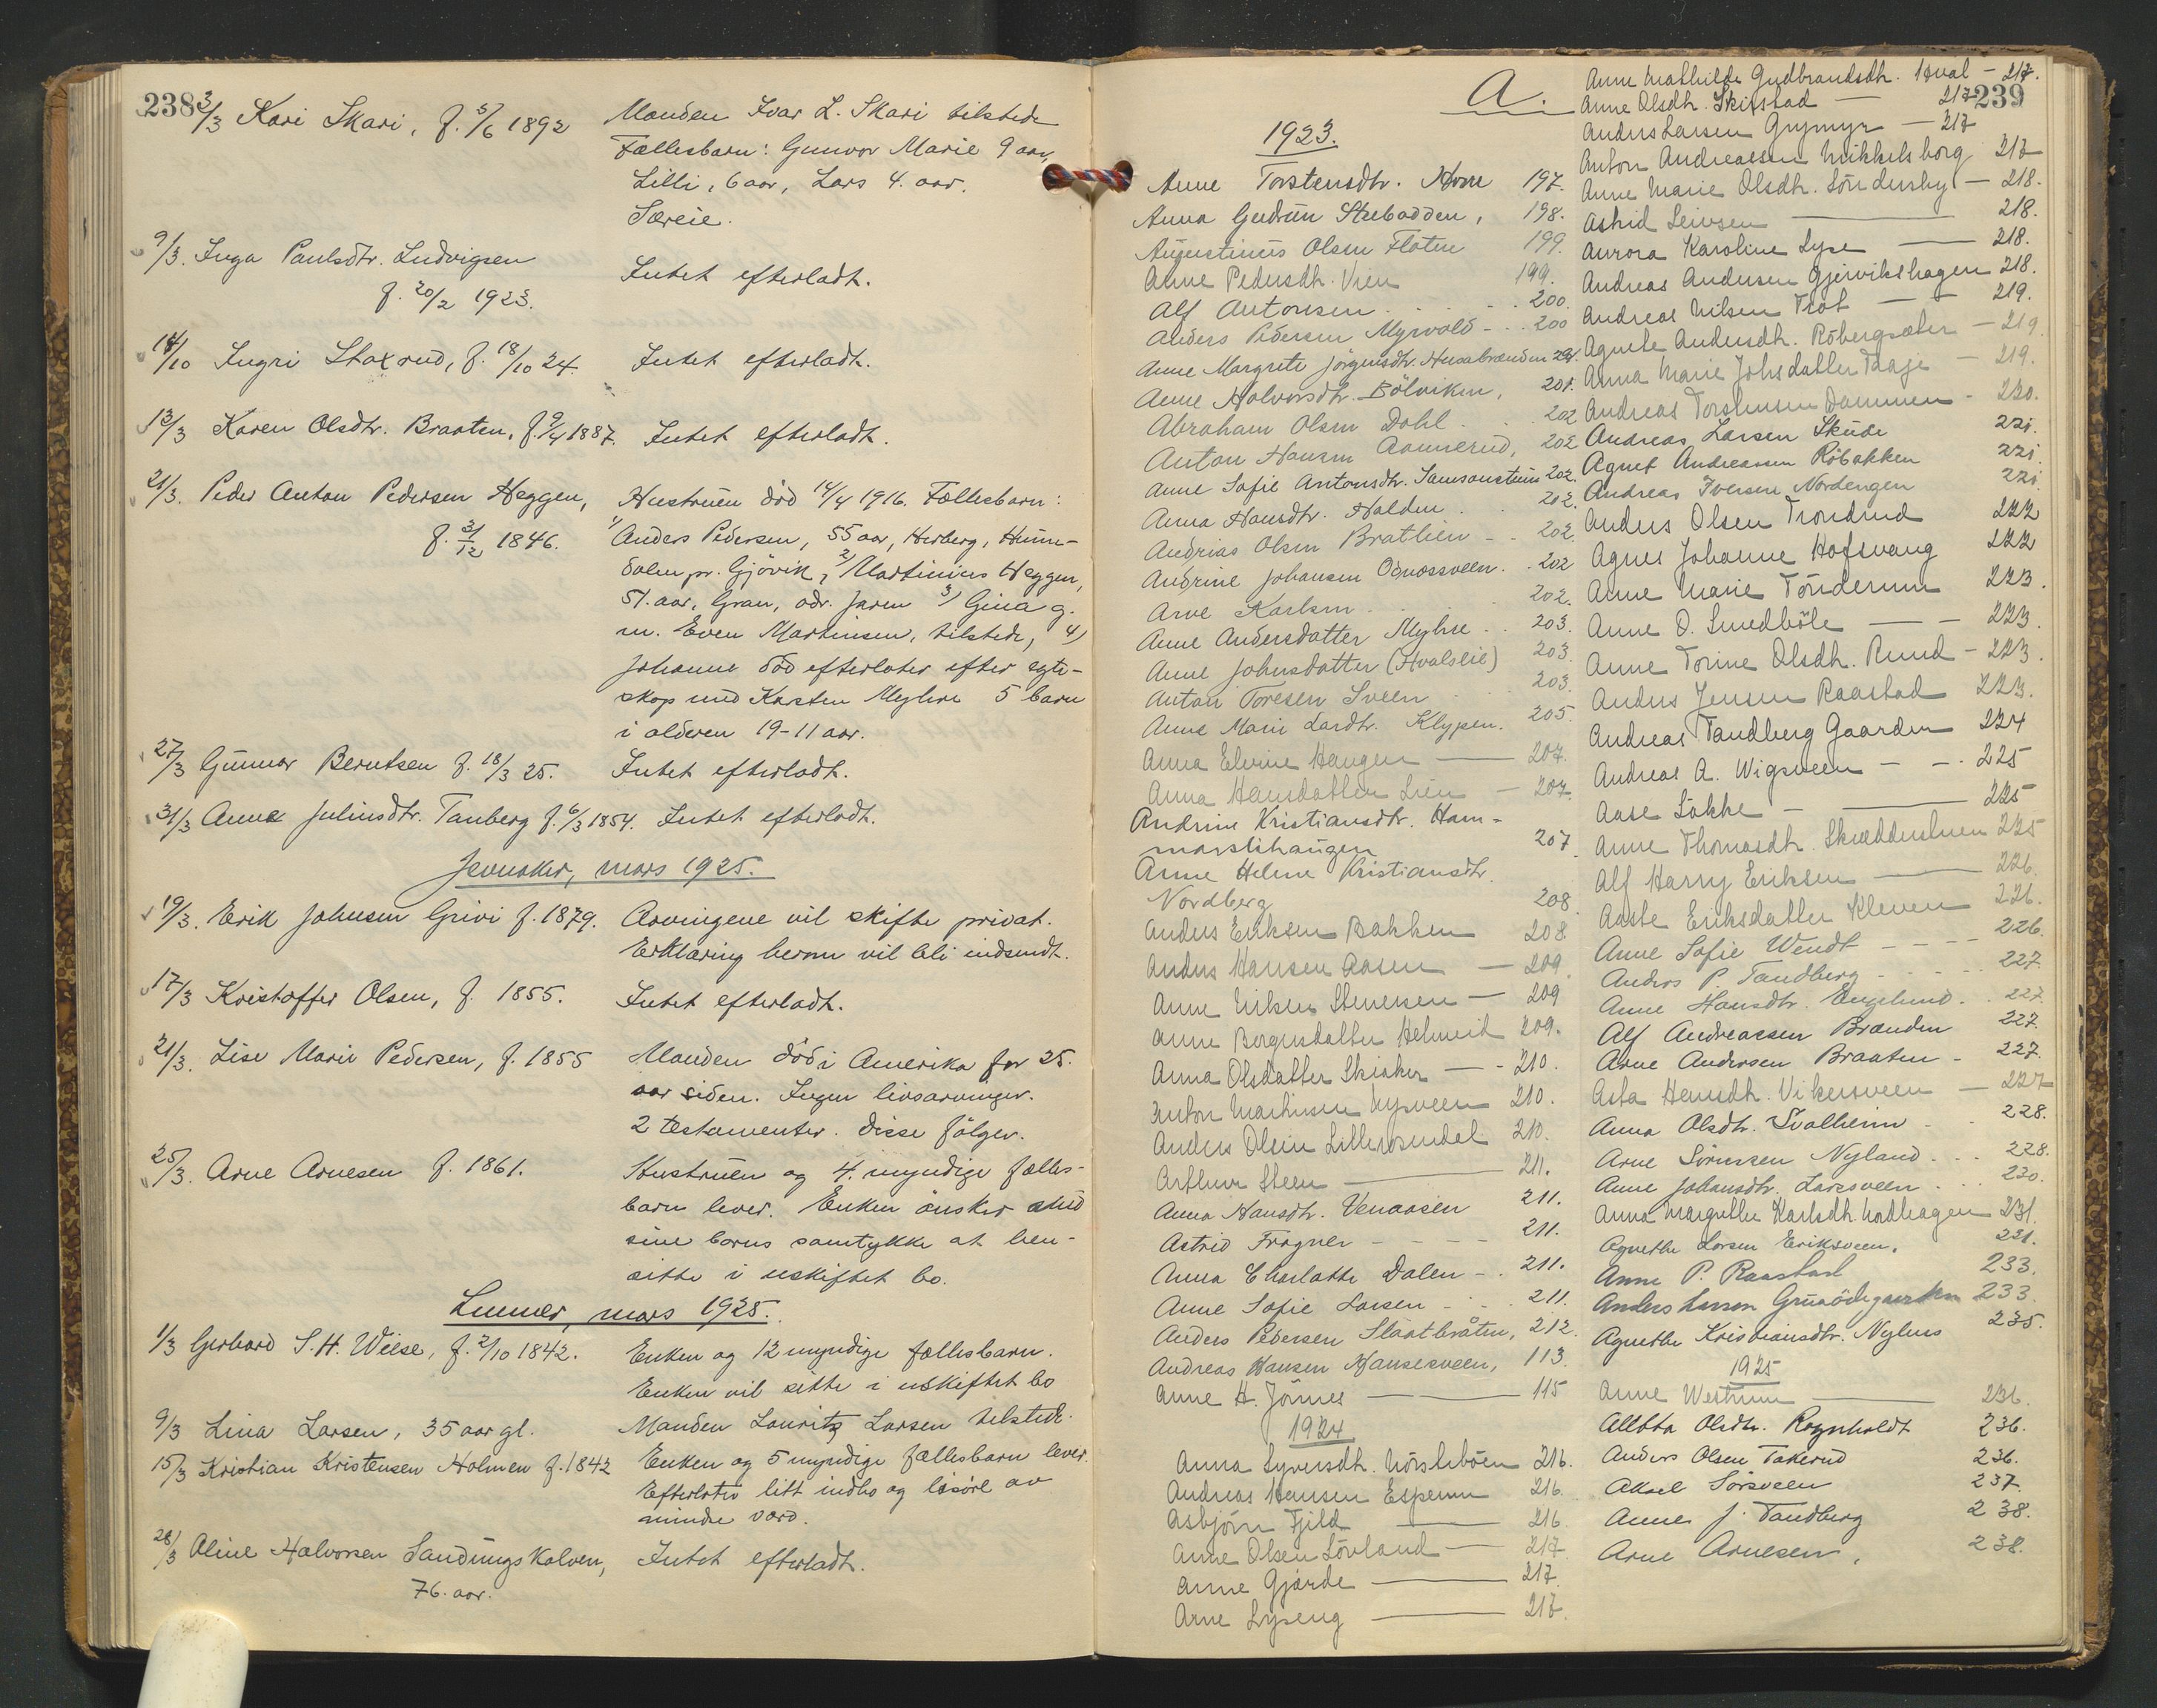 238
3/3 Kari Skari, f. 5/6 1892
Manden Ivar L. Skari tilstede
Fællesbarn: Gunvor Marie 9 aar,
Lilli, 6 aar, Lars 4. aar.
Særeie.
9/3. Inga Paulsdtr. Ludvigsen
f. 20/2 1923.
Intet efterladt.
14/10 Ingri Staxrud, f. 18/10 24.
Intet efterladt.
13/3 Karen Olsdtr. Braaten, f. 9/4 1887.
Intet efterladt.
21/3. Peder Anton Pedersen Heggen,
f. 31/12 1846.
Hustruen död 14/4 1916. Fællesbarn:
1) Anders Pedersen, 55 aar, Herberg, Hunn-
dalen pr. Gjövik, 2) Martinius Heggen,
51. aar, Gran, adr. Jaren 3) Gina g.
m. Even Martinsen, tilstede, 4)
Johanne död efterlater efter egte-
skap med Karsten Myhre 5 barn
i alderen 19-11 aar.
27/3 Gunnar Berntsen f. 18/3 25.
Intet efterladt.
31/3 Anne Juliusdtr. Tanberg f. 6/3 1854.
Intet efterladt.
Jevnaker, mars 1925.
19/3. Erik Johnsen Grivi f. 1879.
Arvingene vil skifte privat.
Erklæring herom vil bli indsendt.
17/3 Kristoffer Olsen, f. 1855.
Intet efterladt.
21/3. Lise Marie Pedersen, f. 1855
Manden död i Amerika for 25.
aar siden. Ingen livsarvinger.
2 testamenter. Disse fölger.
25/3. Arne Arnesen f. 1861.
Hustruen og 4. myndige fælles-
barn lever. Enken önsker med
sine barns samtykke at hen-
sitte i uskiftet bo.
Lunner, mars 1925.
1/3 Gerhard S. H. Wiese, f. 2/10 1842.
Enken og 12 myndige fællesbarn.
Enken vil sitte i uskiftet bo
9/3 Lina Larsen, 35 aar gl.
Manden Lauritz Larsen tilstede.
15/3 Kristian Kristensen Holmen f. 1842
Enken og 5 myndige fællesbarn lever.
Efterlater litt indbo og lösöre av
mindre værd.
28/3 Oline Halvorsen Sandungskalven,
76. aar.
Intet efterladt.
A.
1923.
Anne Torstensdtr. Horne 197.
Anna Gudrun Stubadden, 198.
Augustinus Olsen Flaten 199.
Anne Pedersdtr. Vien 199.
Alf Antonsen 200.
Anders Pedersen Myrvold 200
Anne Margrete Jörgensdtr. Husabrænden 201.
Anne Halvorsdtr. Bölviken, 201.
Abraham Olsen Dahl 202
Anton Hansen Aamerud, 202
Anne Sofie Antonsdtr. Samsonstuen 202.
Anna Hansdtr. Halden 202.
Andrias Olsen Bratlien 202.
Andrine Johansen Odnæssveen 202
Arve Karlsen 202.
Anne Andersdatter Myhre 203.
Anne Johnsdatter (Hvalslie) 203.
Anton Toresen Sveen 203.
Anne Marie Larsdtr. Klypen. 205.
Anna Elvine Haugen 207.
Anna Hansdatter Lien 207.
Andrine Kristiansdtr. Ham-
marslihaugen 207
Anne Helene Kristiansdtr.
Nordberg 208
Anders Eriksen Bakken 208
Anders Hansen Aasen 209.
Anne Nilsen Stenersen 209
Anne Borgersdatter Helmeid 209.
Anna Olsdatter Skiaker 210.
Anton Martinsen Nysveen 210.
Anders Olsen Lillerosendal 210.
Arthur Steen 211.
Anna Hansdtr. Venaasen 211.
Astrid Frögner 211.
Anna Charlotte Dalen 211.
Anne Sofie Larsen 211.
Anders Pedersen Slaatbråten, 212.
Andreas Hansen Hansesveen, 113.
Anne H. Jörnes 115
1924
Anna Syversdtr. Nörsteböen 216.
Andreas Hansen Espenrn 216.
Asbjörn Fjeld 216
Anne Olsen Lövland 217
Anne Gjærde 217.
Arne Lyseng 217.
239
Anne Mathilde Gudbrandsdtr. Hval 217.
Anne Olsdtr. Skifstad 217
Anders Larsen Grymyr 217
Anton Andreassen Mikkelsborg 217
Anne Marie Olsdtr. Sönderby 218.
Astrid Seiersen 218.
Aurora Karoline Lyse 218.
Andreas Andersen Gjervikshagen 218.
Andreas Nilsen Tröt 219.
Agnete Andersdtr. Röbergsæter 219.
Anna Marie Johsdatter Taaje 219.
Andreas Torstensen Dammen 220.
Andreas Larsen Skute 221.
Agnet Andreassen Röbakken 221.
Andreas Iversen Nordengen 221.
Anders Olsen Trondrud 222
Agnes Johanne Hofsvang 222
Anne Marie Tönderum 223.
Anne O. Smedböle 223.
Anne Torine Olsdtr. Rund 223.
Anders Jensen Raastad 223.
Andreas Tandberg Gaarden 224
Andreas A. Wigsveen 225
Aase Løkke 225
Anne Thomasdtr. Skrædderstuen 225
Alf Harry Eriksen 226.
Aaste Eriksdatter Kleven 226.
Anne Sofie Wendt 226.
Anders P. Tandberg 227.
Anne Hansdtr. Englund 227.
Alf Andreassen Brænden 227.
Arne Andersen Braaten 227.
Asta Hansdtr. Vikersveen 227
Anna Olsdtr. Svalheim 228.
Arne Sörensen Nyland 228.
Anne Johansdtr. Larsveen 230.
Anna Margrethe Karlsdtr. Nordhagen 231.
Agnethe Larsen Eriksveen. 231.
Anne P. Raastad 233.
Anders Larsen Grinödegaarden 233.
Agnethe Kristiansdtr. Nyhus 235.
1925
Anne Westrum 236.
Olsdtr. Rognholdt 236.
Anders Olsen Takerud 236.
Aksel Sörsveen 237.
Anne J. Tandberg 238.
Arne Arnesen, 238.